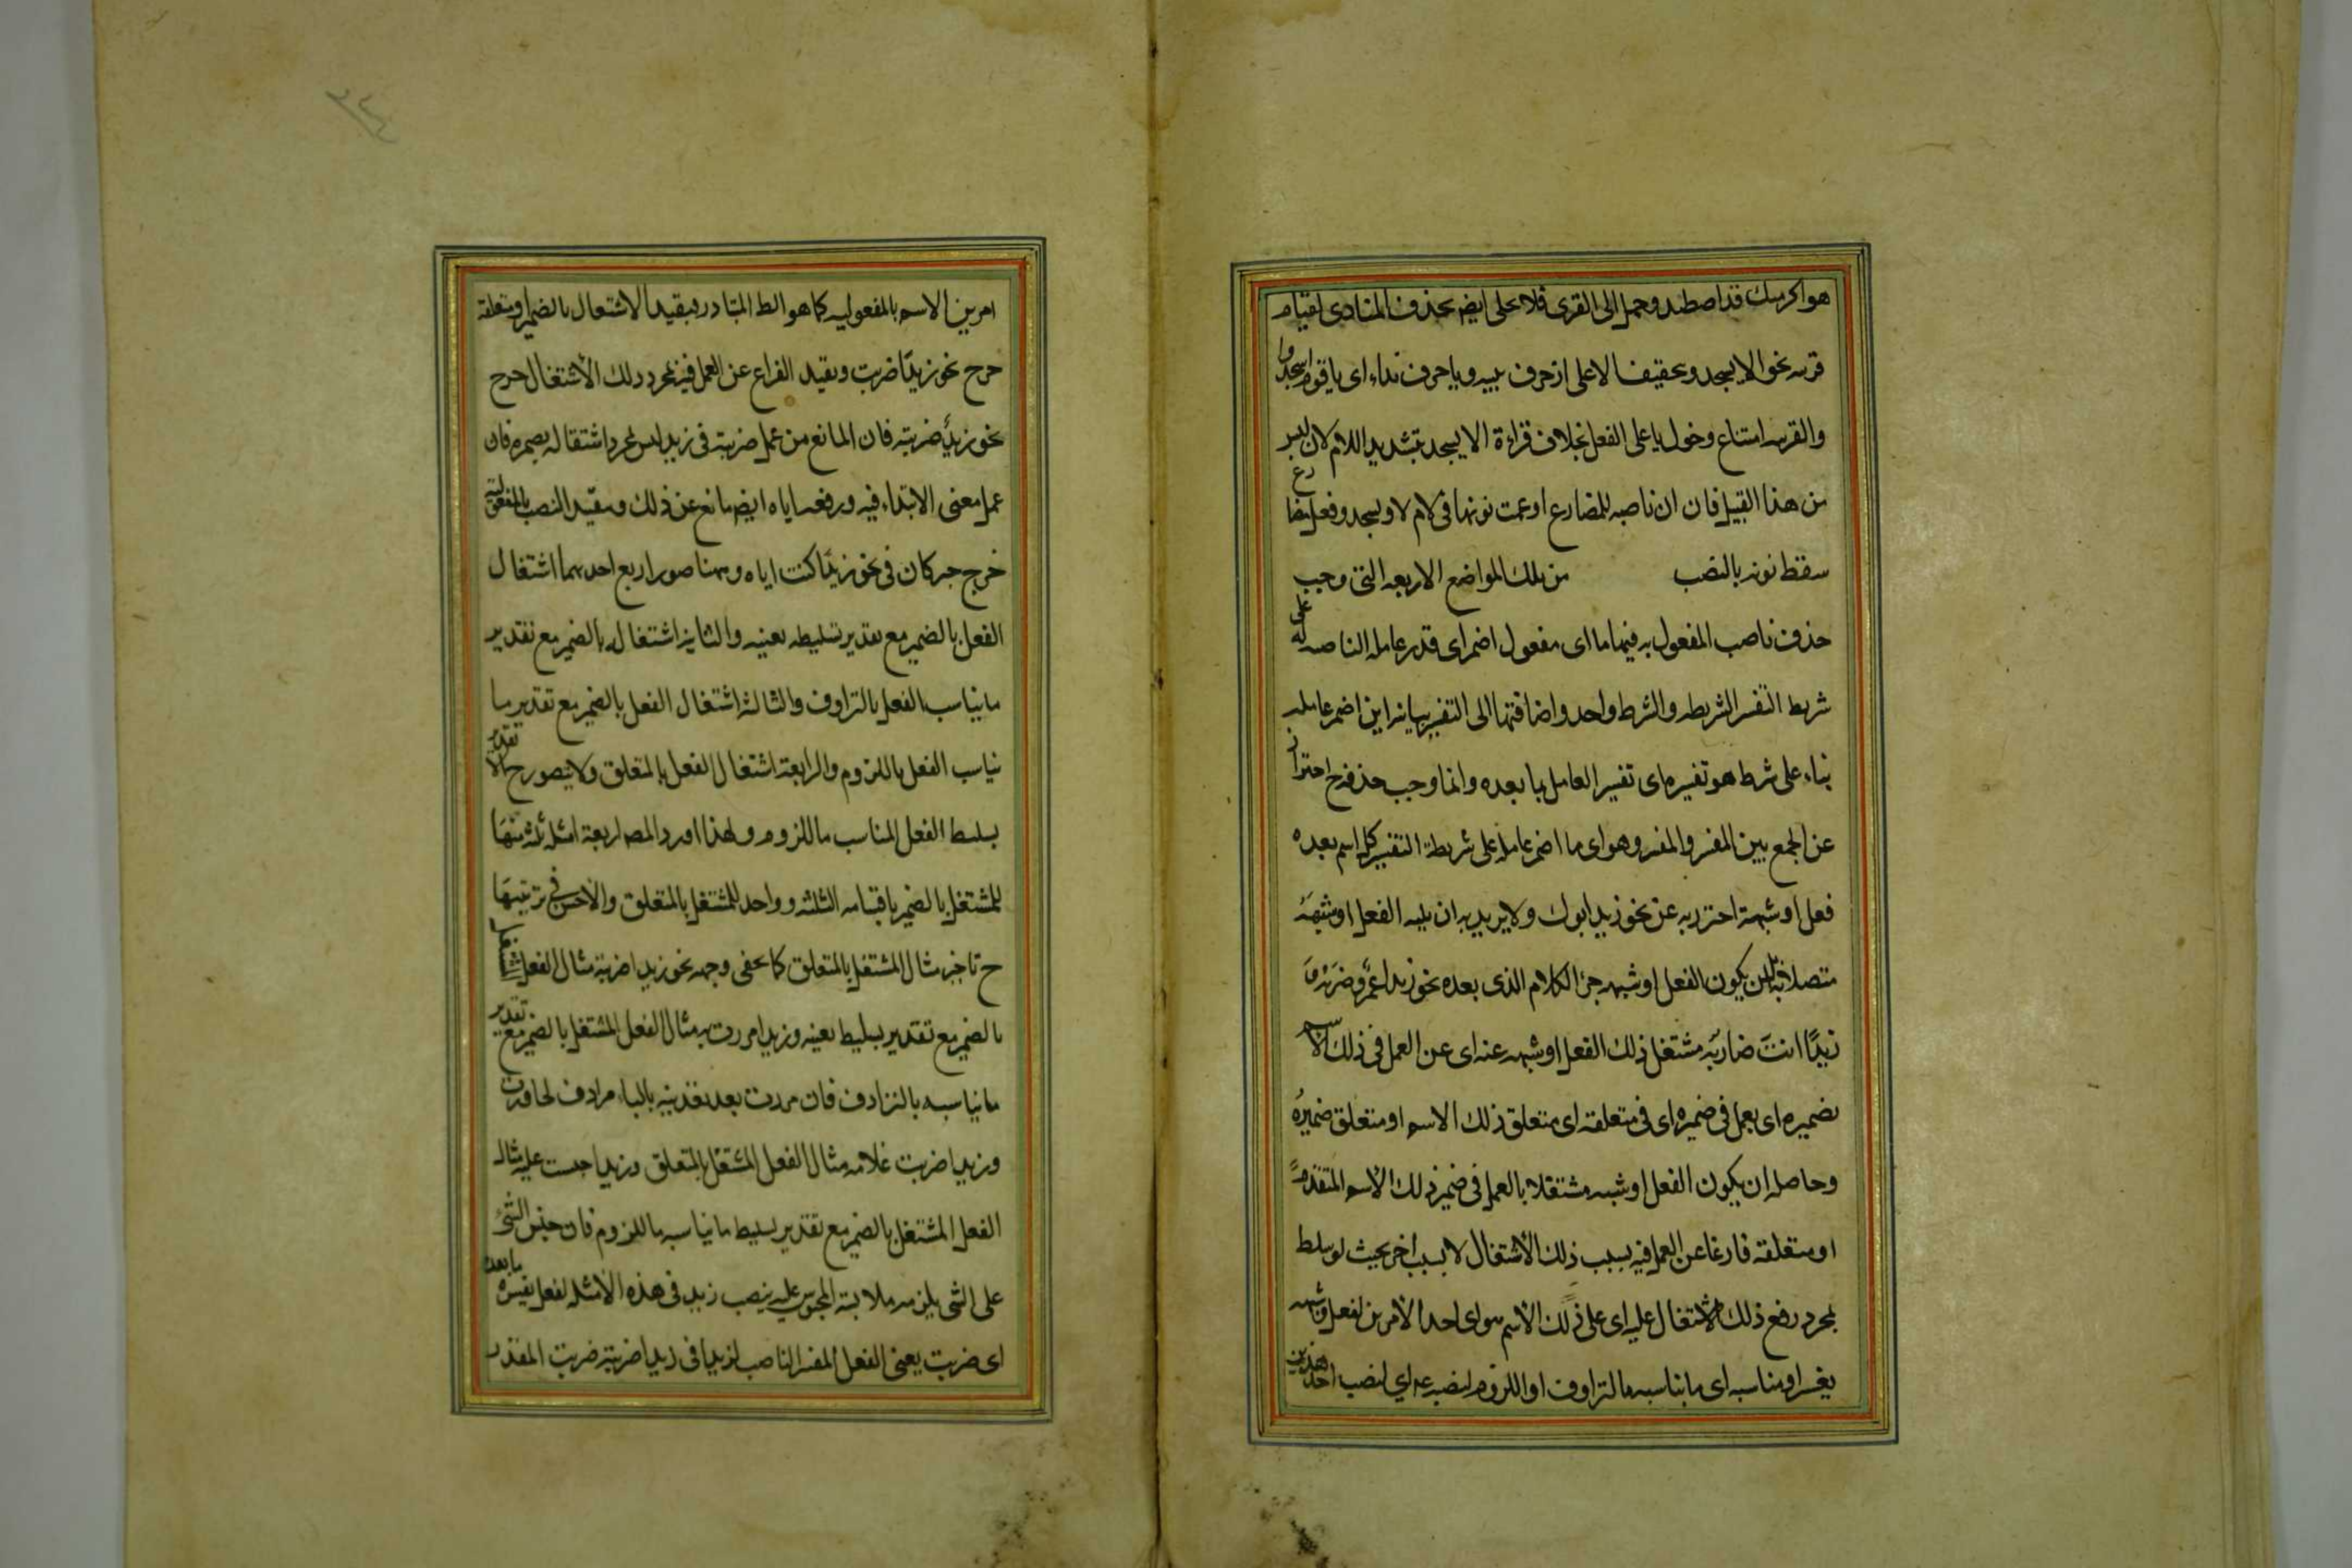 هو اكرمنك قد اصطيد وحمل الى القرى فلا يخلى ايضا بحذف المنادى لقيام
قرينه نحو الا يسجدوا بتخفيف الا على انه حرف تنبيه ويا حرف نداء اى يا قوم اسجدوا
والقرينه امتناع دخول يا على الفعل بخلاف قراءة الا يسجدوا بتشديد اللام لانه ليس
من هذا القبيل فان ان ناصبه للمضارع ادغمت نونها فى لام لا ويسجدوا فعل مضارع
سقط نونه بالنصب من تلك المواضع الاربعه التى وجب
حذف ناصب المفعول به فيها ما اى مفعول اضمر اى قدر عامله الناصب له على
شريطة التفسير الشريطه والشرط واحد واضافتها الى التفسير بيانيه اى اضمر عامله
بناء على شرط هو تفسيره اى تفسير العامل بما بعده وانما وجب حذفه ح احترازا
عن الجمع بين المفسر والمفسر وهو اى ما اضمر عامله على شريطة التفسير كل اسم بعده
فعل او شبهه احترز به عن نحو زيد ابوك ولا يريد به ان يليه الفعل او شبهه
متصلا به بل ان يكون الفعل او شبهه جزء الكلام الذى بعده نحو زيدا عمرو ضربه و
زيدًا انت ضاربه مشتغل ذلك الفعل او شبهه عنه اى عن العمل فى ذلك الاسم
بضميره اى بعمل فى ضميره اى فى متعلقه اى متعلق ذلك الاسم او متعلق ضميره
وحاصله ان يكون الفعل او شبهه مشتغلا بالعمل فى ضمير ذلك الاسم المتقدم
او متعلقه فارغا عن العمل فيه بسبب ذلك الاشتغال لا بسبب اخر بحيث لو سلط
بمجرد رفع ذلك الاشتغال عليه اى على ذلك الاسم هو اى احد الامرين لفعل وشبهه
بعينه او مناسبه اى ما يناسبه بالترادف او اللزوم لنصبه اى لنصب احد هذين
امرين الاسم بالمفعوليه كما هو الظ المتبادر فبقيد الاشتغال بالضمير او متعلقه
خرج نحو زيدًا ضربت وبقيد الفراغ عن العمل فيه بمجرد ذلك الاشتغال خرج
نحو زيدٌ ضربته فان المانع من عمل ضربته فى زيد ليس بمجرد اشتغاله بضميره فان
عمل معنى الابتداء فيه ورفعه اياه ايضا مانع عن ذلك وبقيد النصب بالمفعولية
خرج خبر كان فى نحو زيدًا كنت اياه وههنا صور اربع احديهما اشتغال
الفعل بالضمير مع تقدير تسليطه بعينه والثانيه اشتغاله بالضمير مع تقدير
ما يناسب الفعل بالترادف والثالثه اشتغال الفعل بالضمير مع تقدير ما
يناسب الفعل باللزوم والرابعة اشتغال الفعل بالمتعلق ولا يتصور ح الا تقدير
تسليط الفعل المناسب باللزوم ولهذا اورد المص اربعة امثلة ثلثه منها
للمشتغل بالضمير باقسامه الثلثه وواحد للمشتغل بالمتعلق والاحسن فى ترتيبها
ح تاخير مثال المشتغل بالمتعلق كما يخفى وجهه نحو زيدا ضربته مثال الفعل المشتغل
بالضمير مع تقدير تسليطه بعينه وزيدا مررت به مثال الفعل المشتغل بالضمير مع تقدير
ما يناسبه بالترادف فان مررت بعد تعديته بالباء مرادف لجاوزت
وزيدا ضربت غلامه مثال الفعل المشتغل بالمتعلق وزيدا حبست عليه مثال
الفعل المشتغل بالضمير مع تقدير تسليط ما يناسبه باللزوم فان حبس الشئ
على الشى يلزمه ملابسة المحبوس عليه ينصب زيد فى هذه الامثله لفعل يفسره ما بعده
اى ضربت يعنى الفعل المفسر الناصب لزيدا فى زيدا ضربته ضربت المقدر